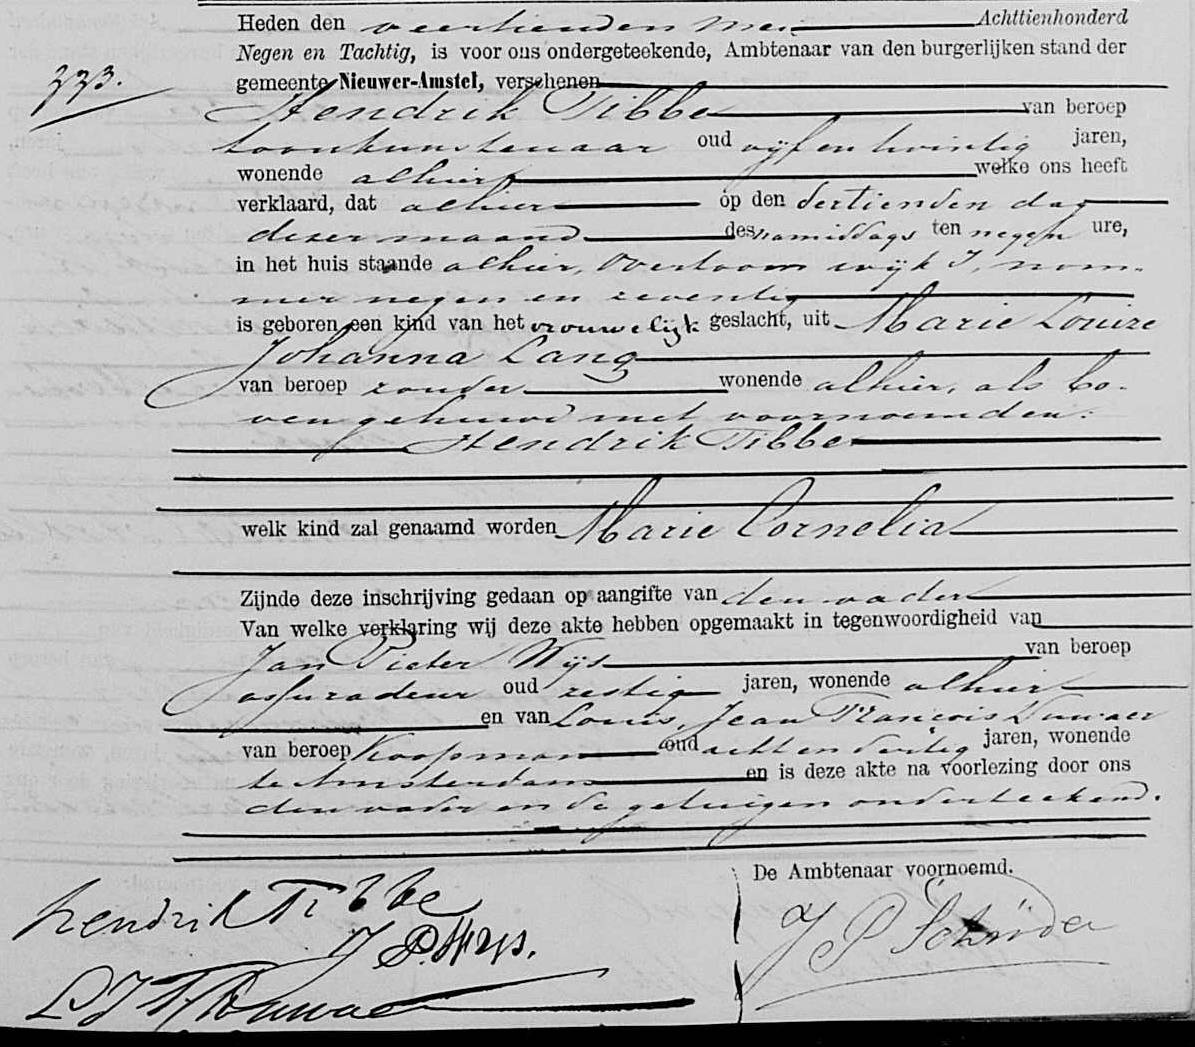 Heden den veertienden Mei Achttienhonderd
Negen en Tachtig, is voor ons ondergeteekende, Ambtenaar van den burgerlijken stand der
333. gemeente Nieuwer-Amstel, verschenen
Hendrik Tibbe van beroep
toonkunstenaar oud vijf en twintig jaren,
wonende alhier welke ons heeft
verklaard, dat alhier op den dertienden dag
dezer maand des namiddags ten negen ure,
in het huis staande alhier, Overtoom wijk J, nom-
mer negen en zeventig
is geboren een kind van het vrouwelijk geslacht, uit Marie Louize
Johanna Lang
van beroep zonder wonende alhier, als bo-
ven gehuwd met voornoemden:
Hendrik Tibbe
welk kind zal genaamd worden Marie Cornelia
Zijnde deze inschrijving gedaan op aangifte van den vader
Van welke verklaring wij deze akte hebben opgemaakt in tegenwoordigheid van
Jan Pieter Wijs van beroep
assuradeur oud zestig jaren, wonende alhier
en van Louis, Jean François
van beroep Koopman oud acht en dertig jaren, wonende
te Amsterdam en is deze akte na voorlezing door ons
den vader en de getuigen onderteekend.
De Ambtenaar voornoemd.
Hendrik Tibbe
J. P. Wijs.
J P Schröder
L J F